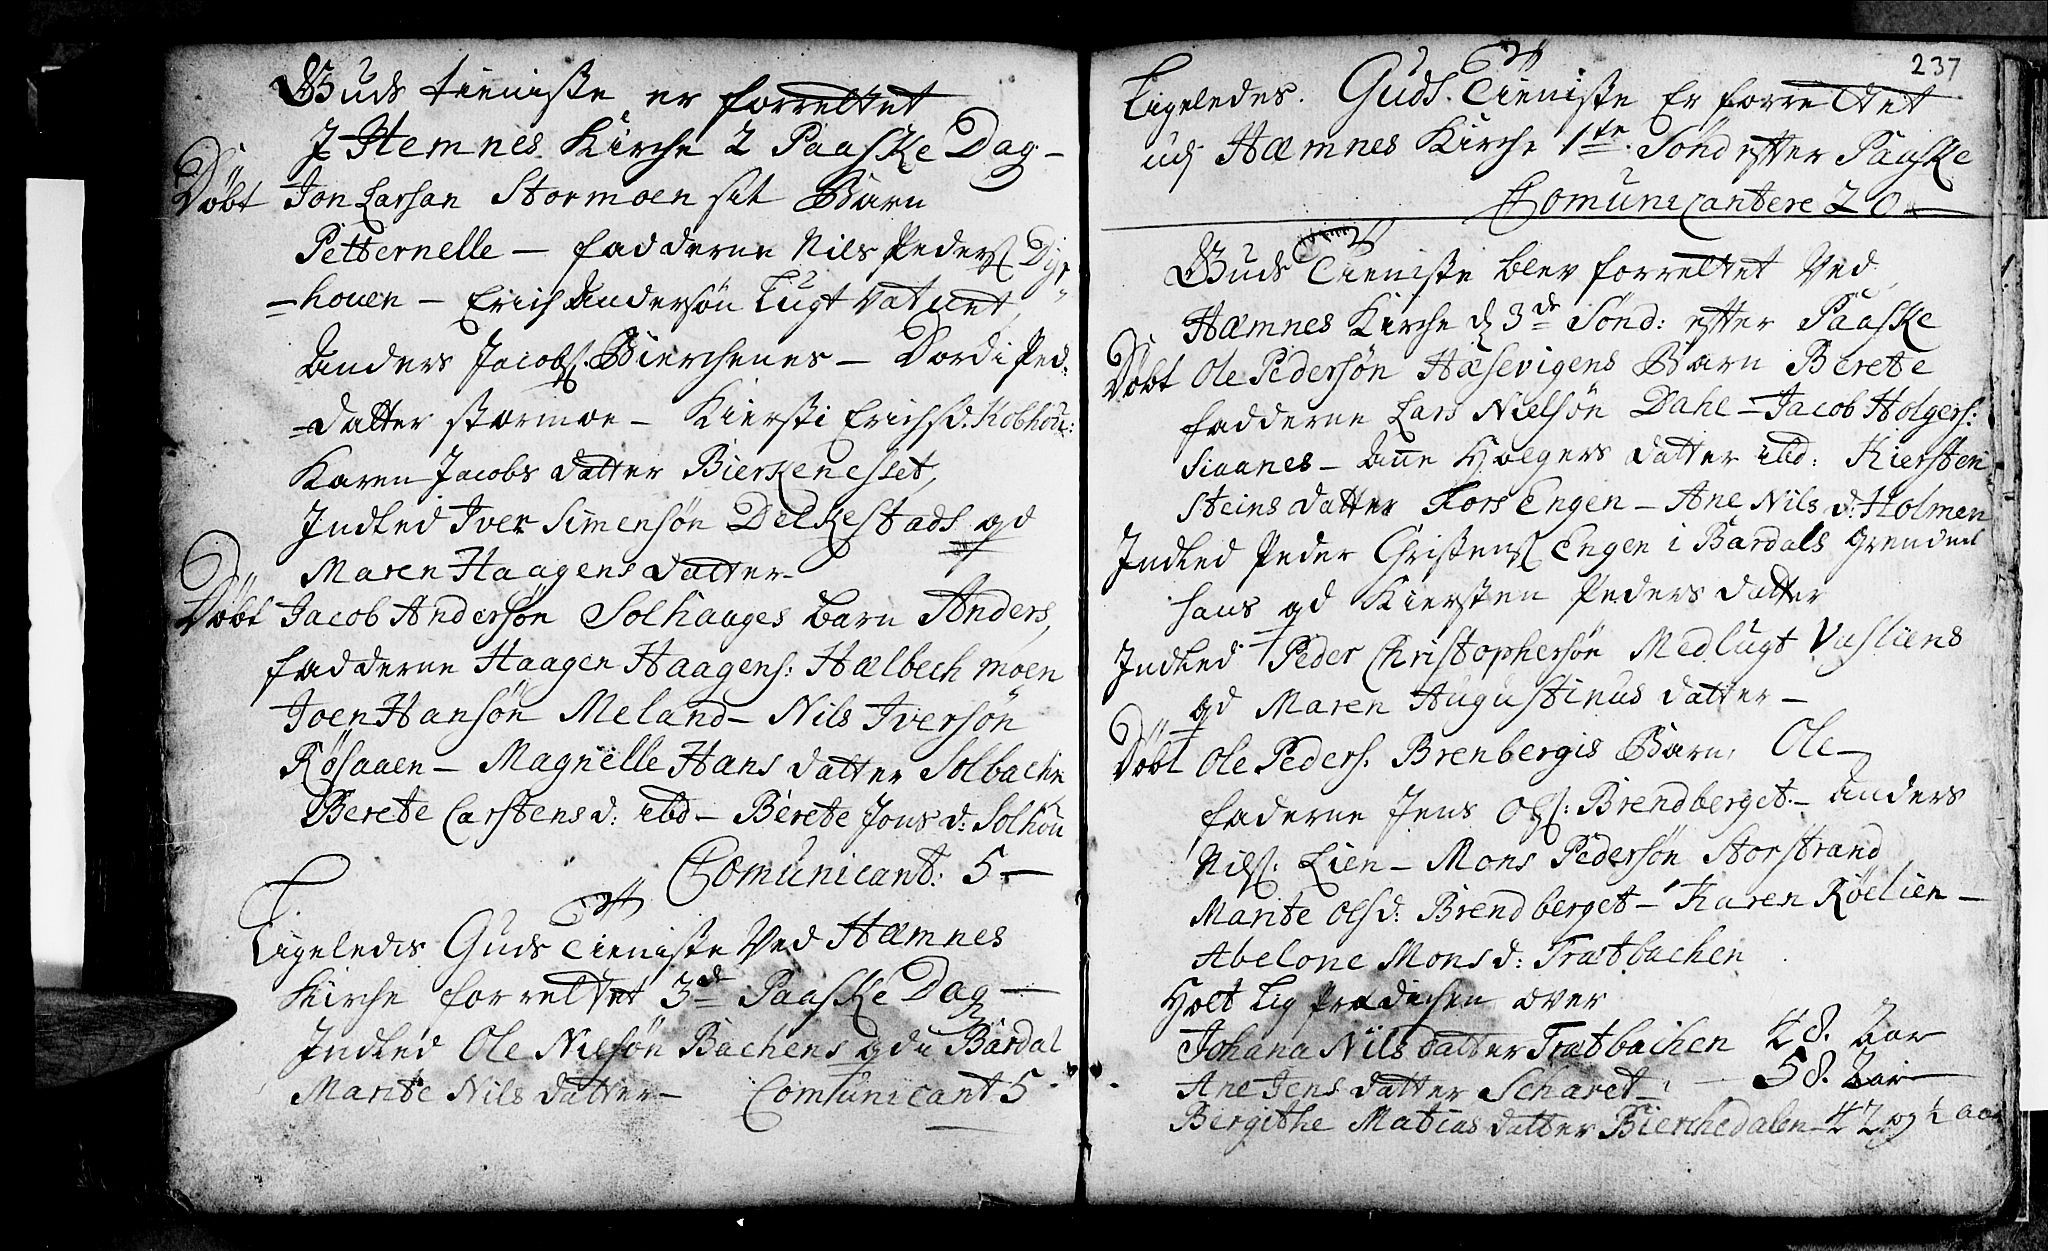 Guds tieniste er forrettet
J Hemnes Kirche 2 Paaske Dag –
Døbt Jon Larsen Stormoen sit Barn
Petternelle – fadderne Nils Peders Dyr-
-houen – Erich Andersøn Lugt Vatnet,
Anders Jacobs. Bierchenes – Dordi Ped:
-datter stormoe – Kiersti Erichsd. Kobhou:
Karen Jacobs datter Bierkeneslet,
Indled Iver Simensøn Delkestads qd
Maren Haagens datter –
Døbt Jacob Andersøn Solhauges barn Anders,
fadderne Haagen Haagens: Hælbech moen
Joen Hansøn Meland – Nils Iversøn
Røsaaen – Magnelle Hans datter Solbachn
Berete Carstens d: ibd – Berete Jons d: Solhou
Comunicant: 5 –
Ligeledes Guds Tieniste Ved Hæmnes
Kirche forrettet 3de Paaske Dag –
Indled Ole Nilsøn Bachens qd i Bardal
Marite Nils datter – Comunicant 5 –
237
Ligeledes. Guds. Tieniste Er forrettet
udj Hæmnes Kirche 1ste. Sönd efter Paaske
Comunicantere 20 –
Guds Tieniste blev forrettet Ved
Hæmnes Kirche d 3de Sönd: efter Paaske
Døbt Ole Pedersøn Hæsevigens Barn Berete
fadderne Lars Nielsøn Dahl – Jacob Holgers:
Siaanes – Ane Holgers datter ibid: Kiersten
Steins datter Fors Engen – Ane Nils d: Holmen
Indled Peder Christens Engen i Bardals Grenden
hans qd Kiersten Peders datter
Indled Peder Christophersön Medlugt Vusliens
qd Maren Augustinus datter –
Døbt Ole Peders: Brenbergis Barn, Ole –
faderne Jens Ols: Brendberget – Anders
Nils: Lien – Mons Pedersøn Storstrand
Marite Olsd: Brendberget – Karen Røelien –
Abelone Mons d: Trætbachen
Holt Lig Prædichen over
Johana Nils datter Trætbachen 48. Aar
Ane Jens datter Scharet – 58. Aar
Bergithe Matias datter Bierchedalen – 42 og ½ aar